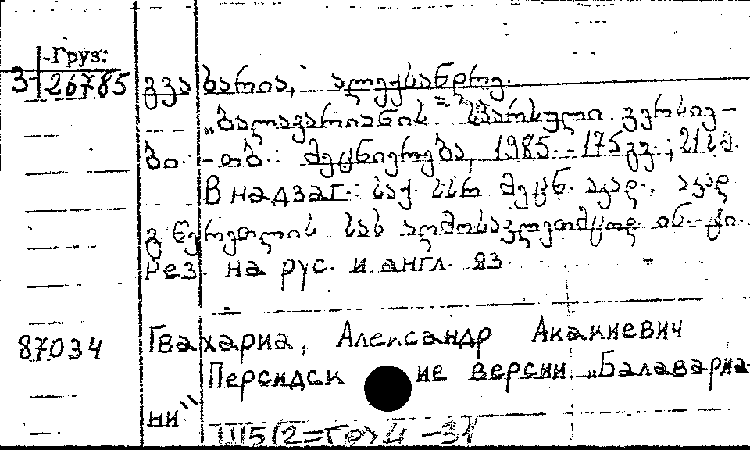 Груз:
3-26785 გვახარია, ალექსანდრე.
„ბალავარიანის" სპარსული ვერსიე-
ბი. - თბ.: მეცნიერება, 1985. - 175 გვ.; 21 სმ.
В надзаг.: საქ. სსრ მეცნ. აკად., აკად.
გ. წერეთლის სახ. აღმოსავლეთმცოდ. ინ-ტი.
Рез. на рус. и англ. яз
87034 Гвахариа, Александр Акакиевич
Персидские версии „Балавариа-
ни"